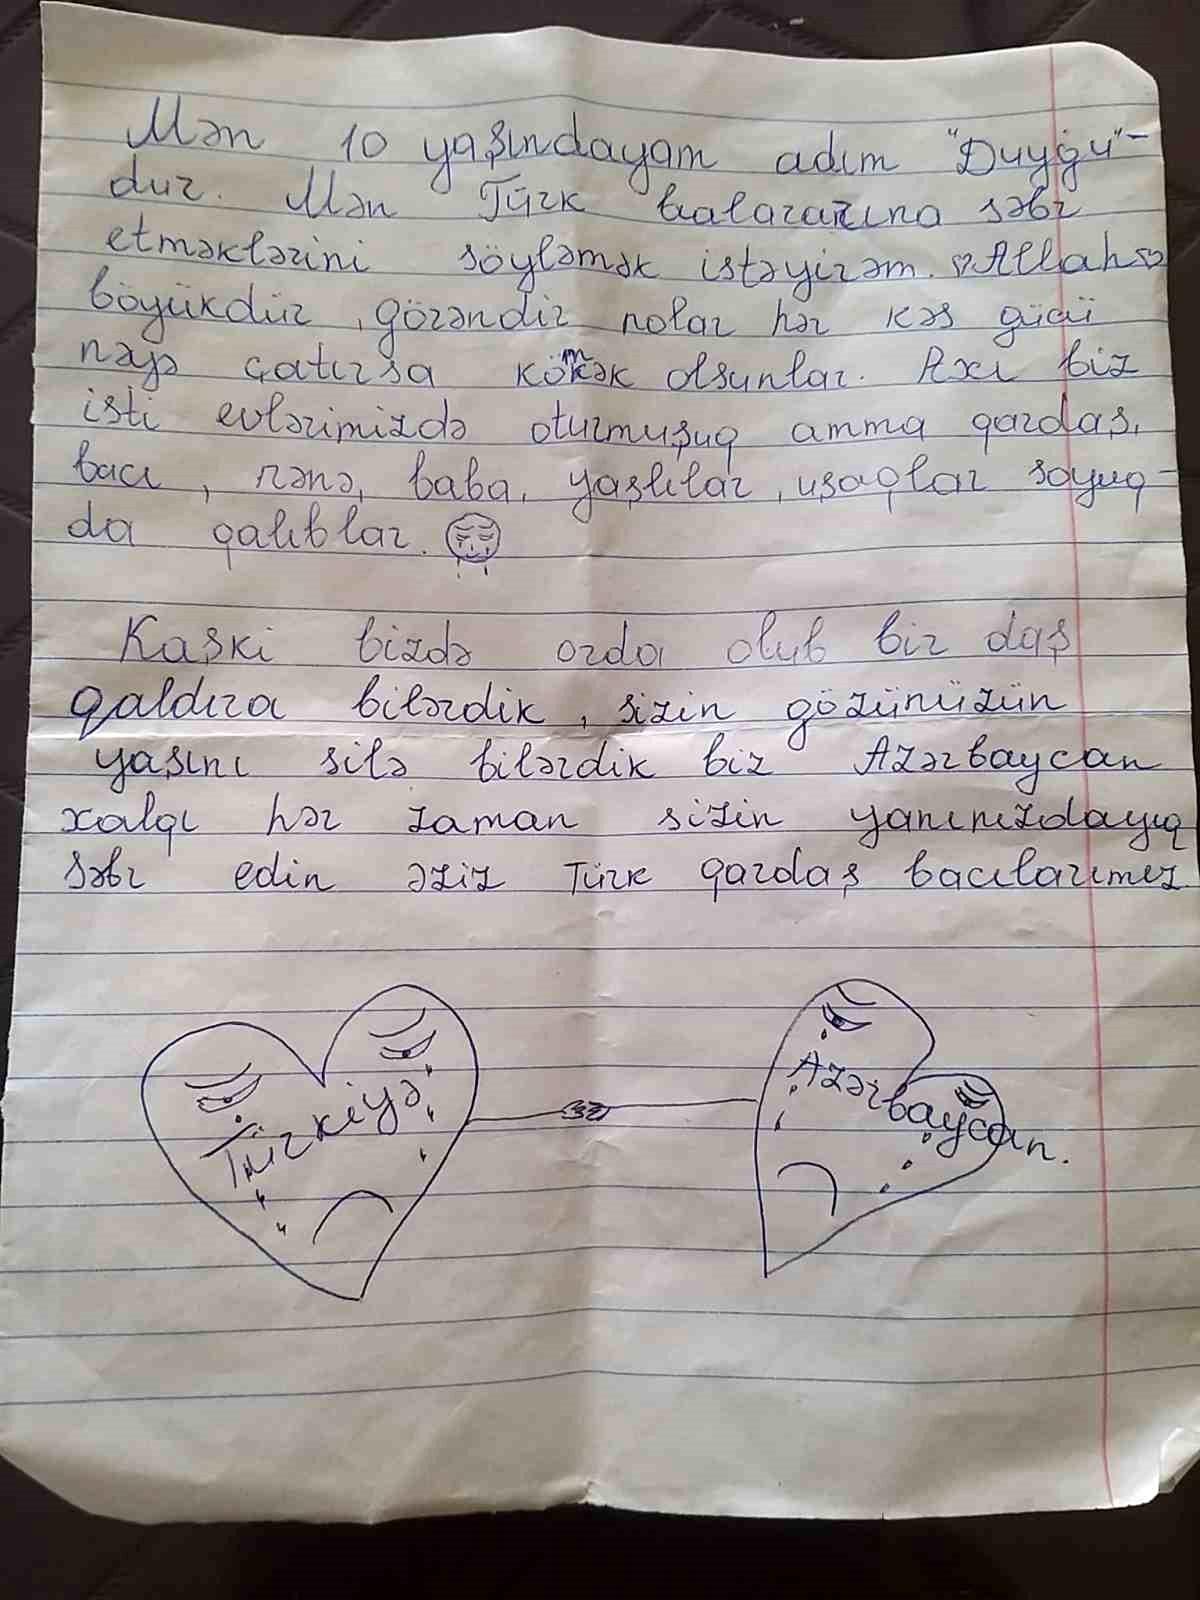 Mən 10 yaşındayam adım "Duyğu"-
dur. Mən Türk balalarına səbr
etməklərini söyləmək istəyirəm. ♡Allah♡
böyükdür, görəndir nolar hər kəs gücü
nəyə çatırsa kömək olsunlar. Axı biz
isti evlərimizdə oturmuşuq amma qardaş,
bacı, nənə, baba, yaşlılar, uşaqlar soyuq-
da qalıblar.
Kaşki bizdə orda olub bir daş
qaldıra bilərdik, sizin gözünüzün
yaşını silə bilərdik biz Azərbaycan
xalqı hər zaman sizin yanınızdayıq
səbr edin əziz Türk qardaş bacılarımız
Türkiyə
Azərbaycan.